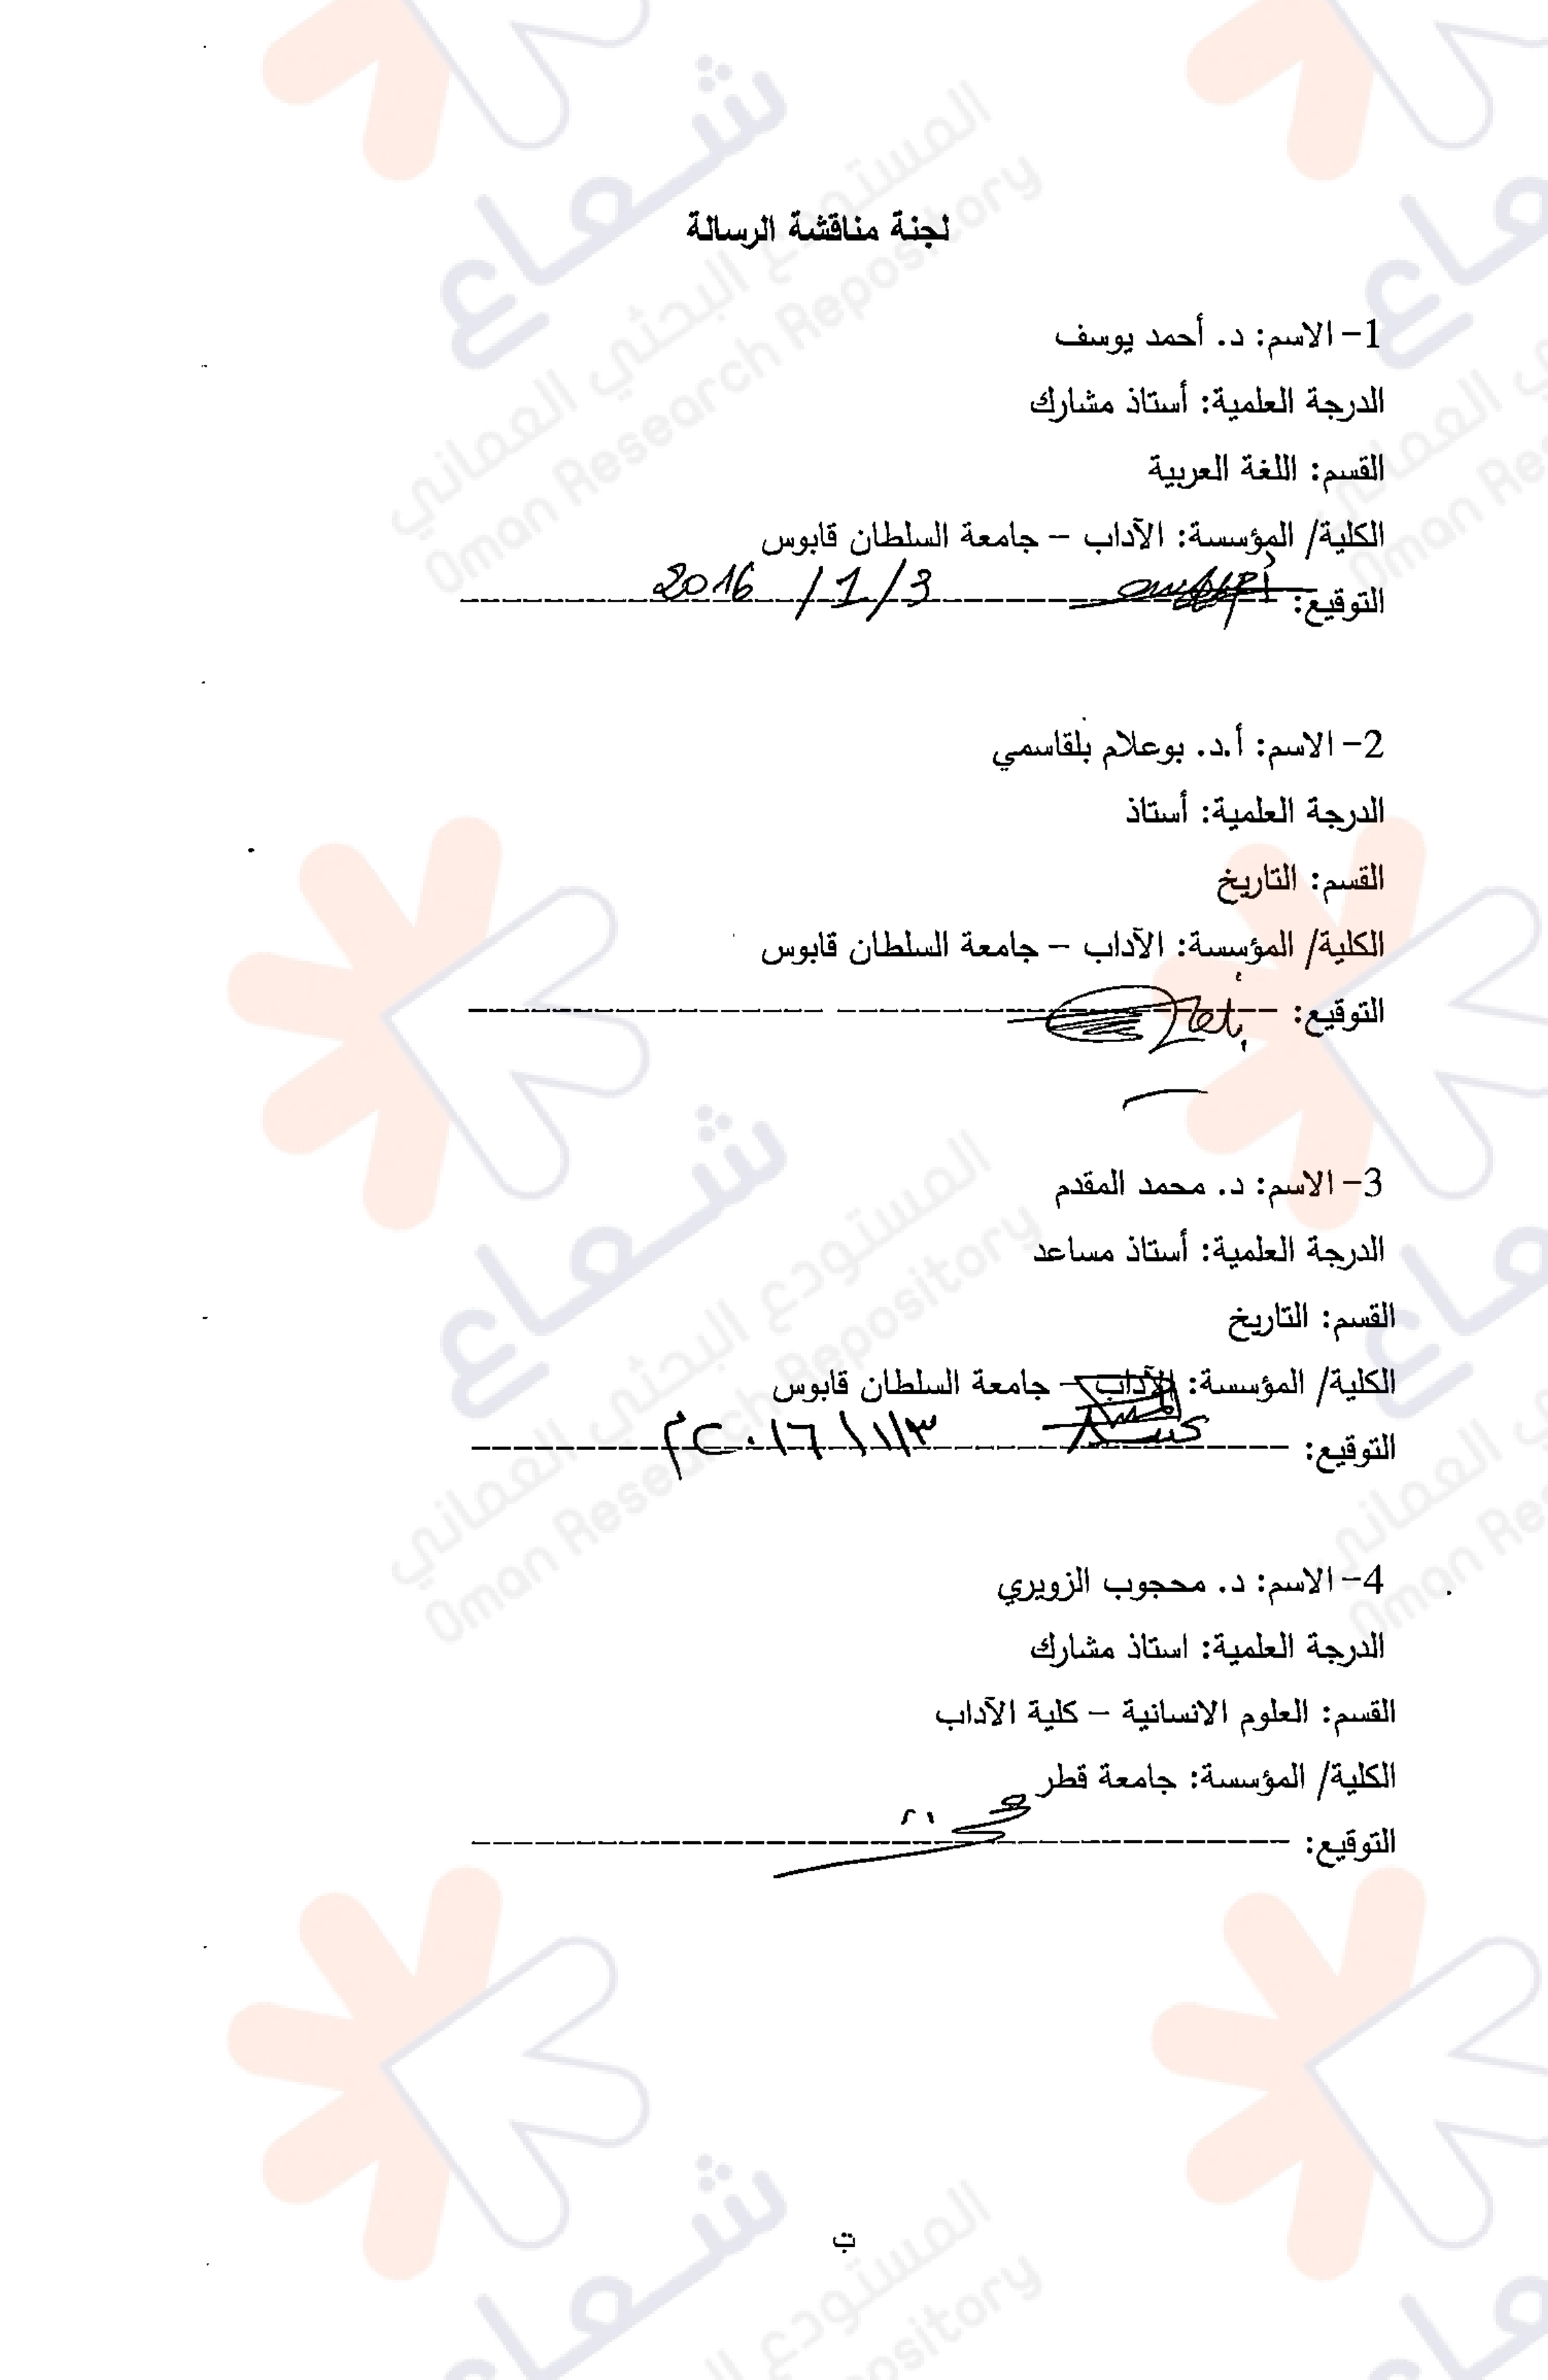 لجنة مناقشة الرسالة
1- الاسم: د. أحمد يوسف
الدرجة العلمية: أستاذ مشارك
القسم: اللغة العربية
الكلية/ المؤسسة: الآداب – جامعة السلطان قابوس
التوقيع: 3/1/2016
2- الاسم: أ.د. بوعلام بلقاسمي
الدرجة العلمية: أستاذ
القسم: التاريخ
الكلية/ المؤسسة: الآداب – جامعة السلطان قابوس
التوقيع:
3- الاسم: د. محمد المقدم
الدرجة العلمية: أستاذ مساعد
القسم: التاريخ
الكلية/ المؤسسة: الآداب – جامعة السلطان قابوس
التوقيع: ٣/١/٢٠١٦م
4- الاسم: د. محجوب الزويري
الدرجة العلمية: استاذ مشارك
القسم: العلوم الانسانية – كلية الآداب
الكلية/ المؤسسة: جامعة قطر
التوقيع:
ب
شعاع
المستودع البحثي العماني
Oman Research Repository